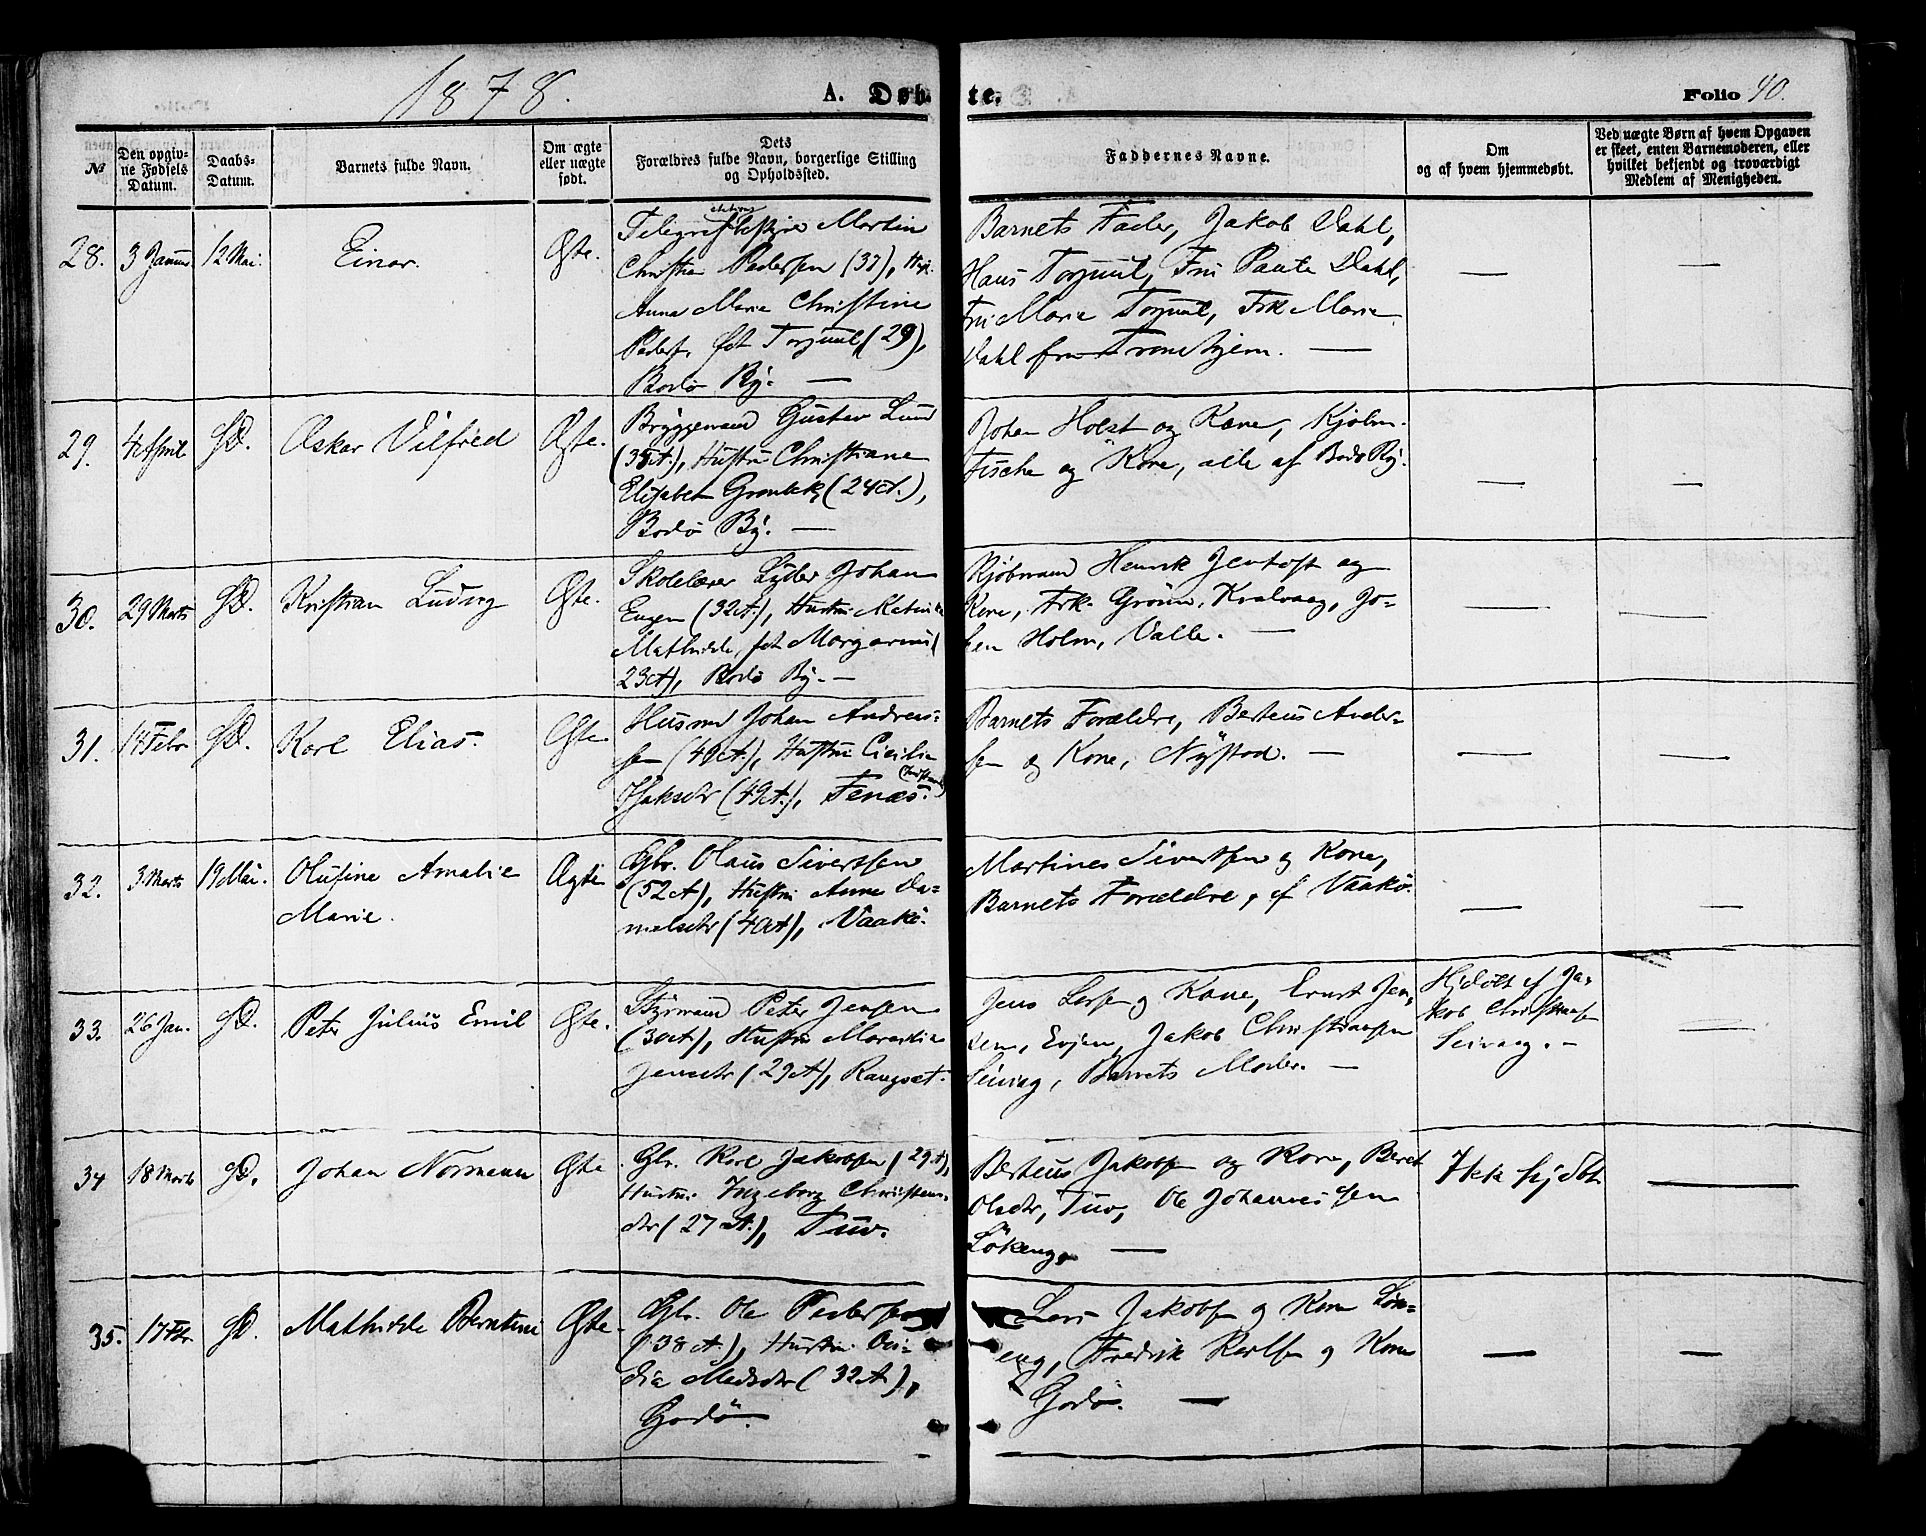 1878.
A. Døb-
te.
Folio 40.
№
Den opgiv-
ne Fødsels
Datum.
Daabs-
Datum.
Barnets fulde Navn.
Om ægte
eller uægte
født.
Dets
Forældres fulde Navn, borgerlige Stilling
og Opholdssted.
Faddernes Navne.
Om
og af hvem hjemmedøbt.
Ved uægte Børn af hvem Opgaven
er skeet, enten Barnemoderen, eller
hvilket bekjendt og troværdigt
Medlem af Menigheden.
28.
3 Januar
12 Mai.
Einar.
Ægte.
stations
Telegraf bestyrer Martin
Christian Pedersen (37),
Anna Marie Christine
Peders. født (29),
Bodø By. —
Barnets Fader, Jakob Dahl,
Hans Fru Dahl,
Fru Marie Frk Marie
Dahl fra Trondhjem. —
29.
4 April
SD.
Oskar Vilfred
Ægte.
Bryggemand Gustav Lund
(35 A.), Hustru Christiane
Elisabet (24 A.),
Bodø By. —
Johan Holst og Kone,
Fischer og Kone, alle af Bodø By.
30.
29 Marts
SD.
Kristian Ludvig
Ægte.
Skolelærer Lyder Johan
(32 A), Hustru
Mathilde, født
23 A), Bodø By. —
Kjøbmand Henrik Jentoft og
Kone, Frk. Kvalvaag, Jo-
han Holm, Valle. —
31.
14 Febr
SD.
Karl Elias.
Ægte
Husmd Johan Andreas-
sen (49 A.), Hustru Cicilie
Isaksdtr (49 A.), Fenæs.
Barnets Forældre, Berteus Ander-
sen og Kone, Nystad. —
32.
3 Marts
19 Mai.
Olufine Amalie
Marie.
Ægte
Gbr. Olaus Sivertsen
(52 A), Hustru Anne Da-
nielsdtr (40 A), Vaakø.
Martines Sivertsen og Kone,
Barnets Forældre, af Vaakø.
33.
26 Jan.
SD.
Peter Julius Emil
Ægte.
Styrmand Peter Jensen
(30 A), Hustru
Jensdtr (29 A),
Jens Larsen og Kone, Ernst Jen-
sen, Evjen, Jakob Christiansen
Seivaag, Barnets Moder. —
Hjdøbt af Ja-
kob Christiansen
Seivaag. —
34
18 Marts
SD.
Johan Normann
Ægte
Gbr. Karl Jakobsen (29 A),
Hustru Ingeborg Christens-
dtr (27 A), Tuv.
Berteus Jakobsen og Kone, Beret
Olsdtr, Tuv, Ole Johannessen
Løkeng. —
Ikke hjdbt
35.
17 Fbr.
SD.
Mathilde Berntine
Ægte
Gbr. Ole Pedersen
(38 A.), Hustru Ovi-
dia Madsdtr (32 A),
Godø.
Lars Jakobsen og Kone Løk-
eng, Fredrik Karlsen og Kone
Godø. —